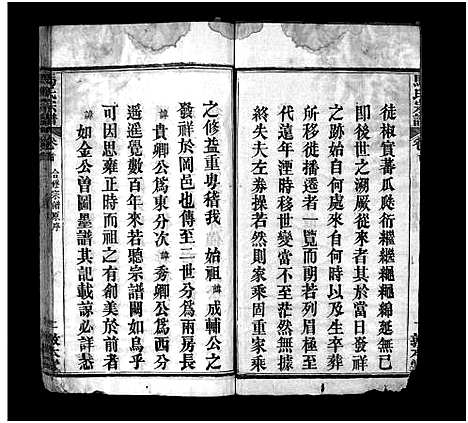 氏宗譜 卷
徒椒實蕃瓜瓞衍繼繼繩繩綿延無已
即後世之溯厥從來者其於當日發祥
之跡始自何處來自何時以及生卒葬
娶繼從播遷者一覽而明若列眉極至
代遠年湮時移世變當不至茫然無據
終失夫左券操若然則家乘固重家乘
之修葺重粤稽我 始祖諱成輔公之
發祥於岡邑也傳至二世分爲兩房長
諱貴卿公爲東分次諱秀卿公爲西分
遙遙覺數百年來若聽宗譜闕如烏乎
可因思雍正時而祖之有創美於前者
諱如金公曾圖墨譜其記載諒必詳悉
氏宗譜 卷首 合修宗譜原序 二 敦本堂